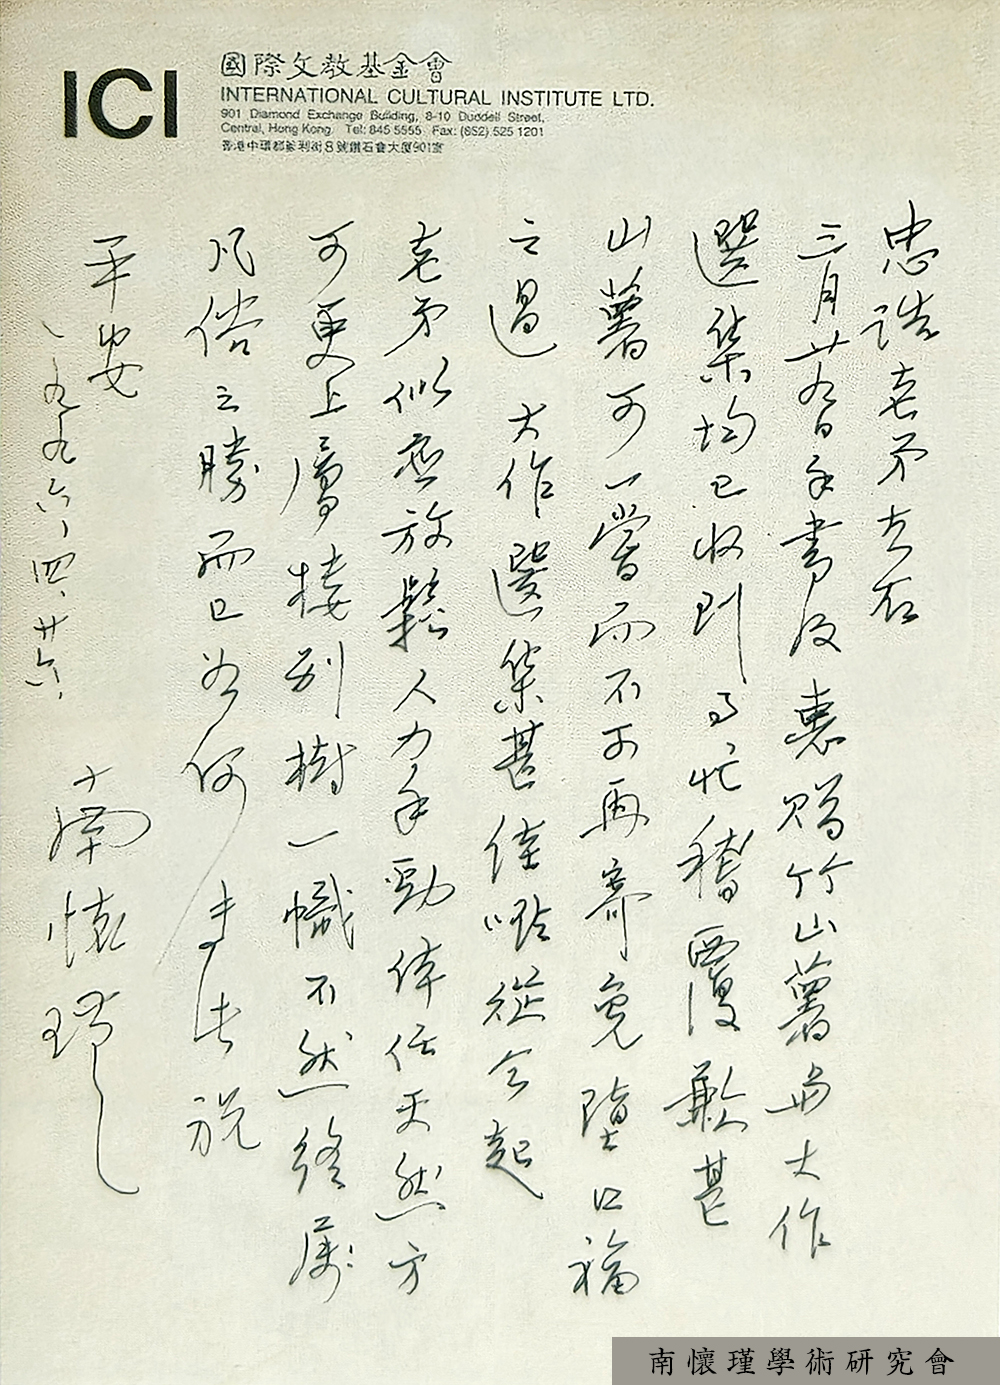 ICI
國際文教基金會
INTERNATIONAL CULTURAL INSTITUTE LTD.
901 Diamond Exchange Building, 8-10 Duddell Street,
Central, Hong Kong. Tel: 845 5555 Fax: (852) 525 1201
香港中環都爹利街8號鑽石會大廈901室
忠誥老弟左右
三月廿九日手書及惠贈竹山薯與大作
選集均已收到事忙稽覆歉甚
山薯可一嘗而不可再寄免墮口福
之過 大作選集甚佳唯從今起
老弟似應放鬆人力手勁倖任天然方
可更上層樓別樹一幟不然終屬
凡俗之勝而已為何 專此祝
平安
一九九六、四、廿六、
南懷瑾
南懷瑾學術研究會